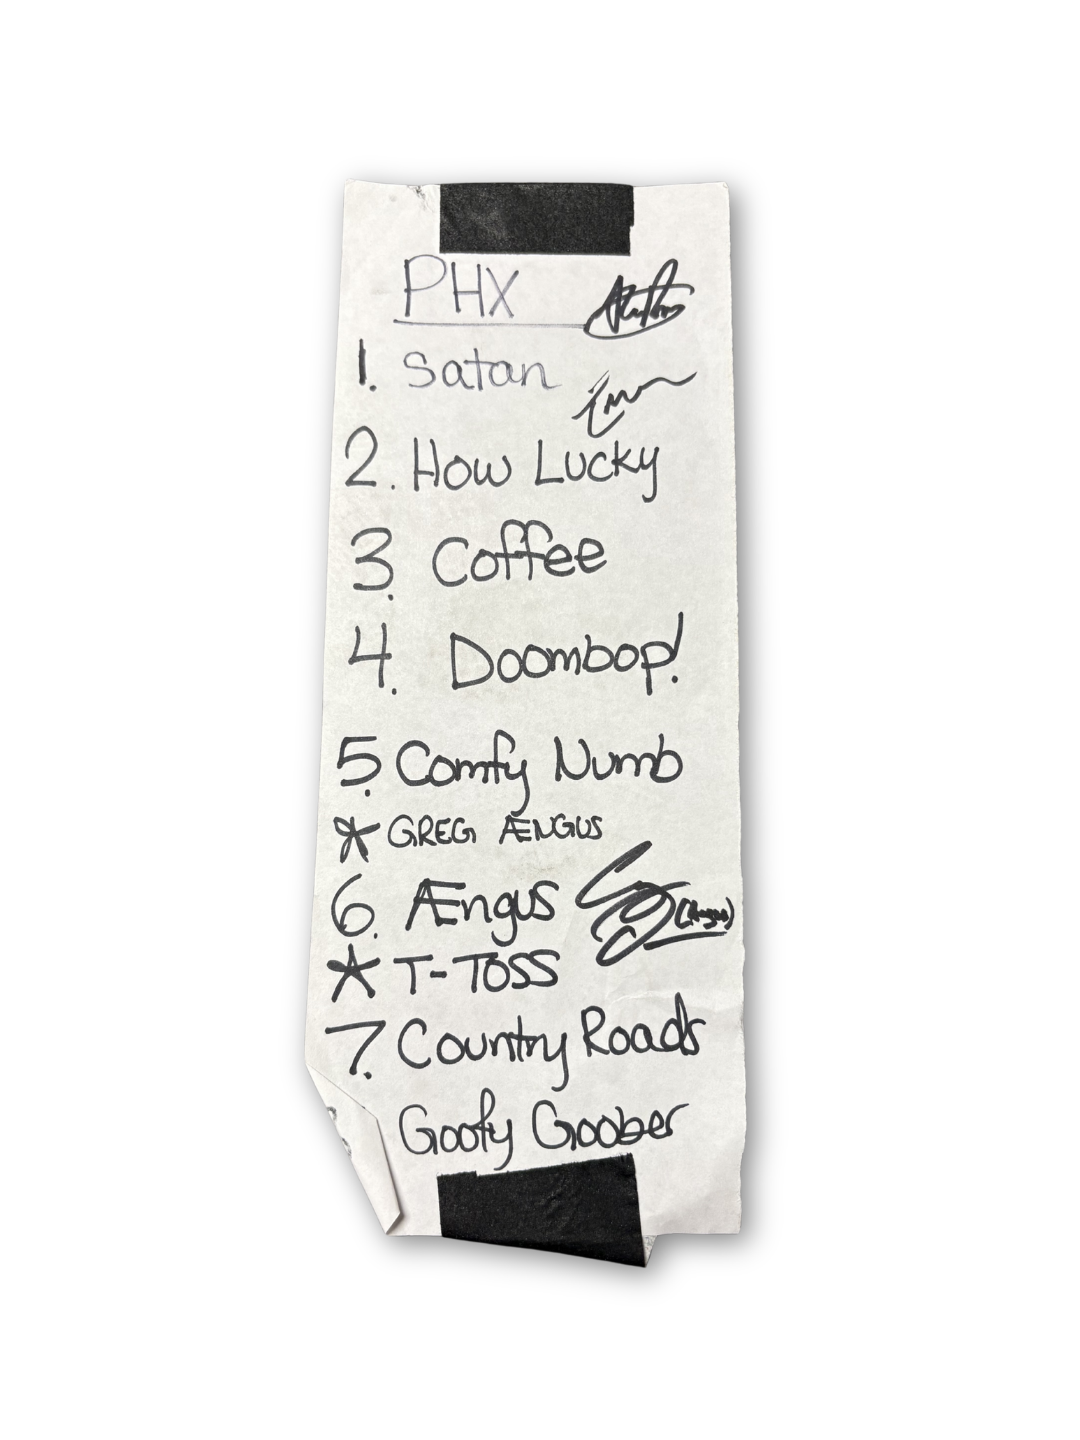 PHX
1. Satan
2. How Lucky
3. Coffee
4. Doombop!
5. Comfy Numb
* GREG ÆNGUS
6. Ængus (Angus)
* T-TOSS
7. Country Roads
Goofy Goober